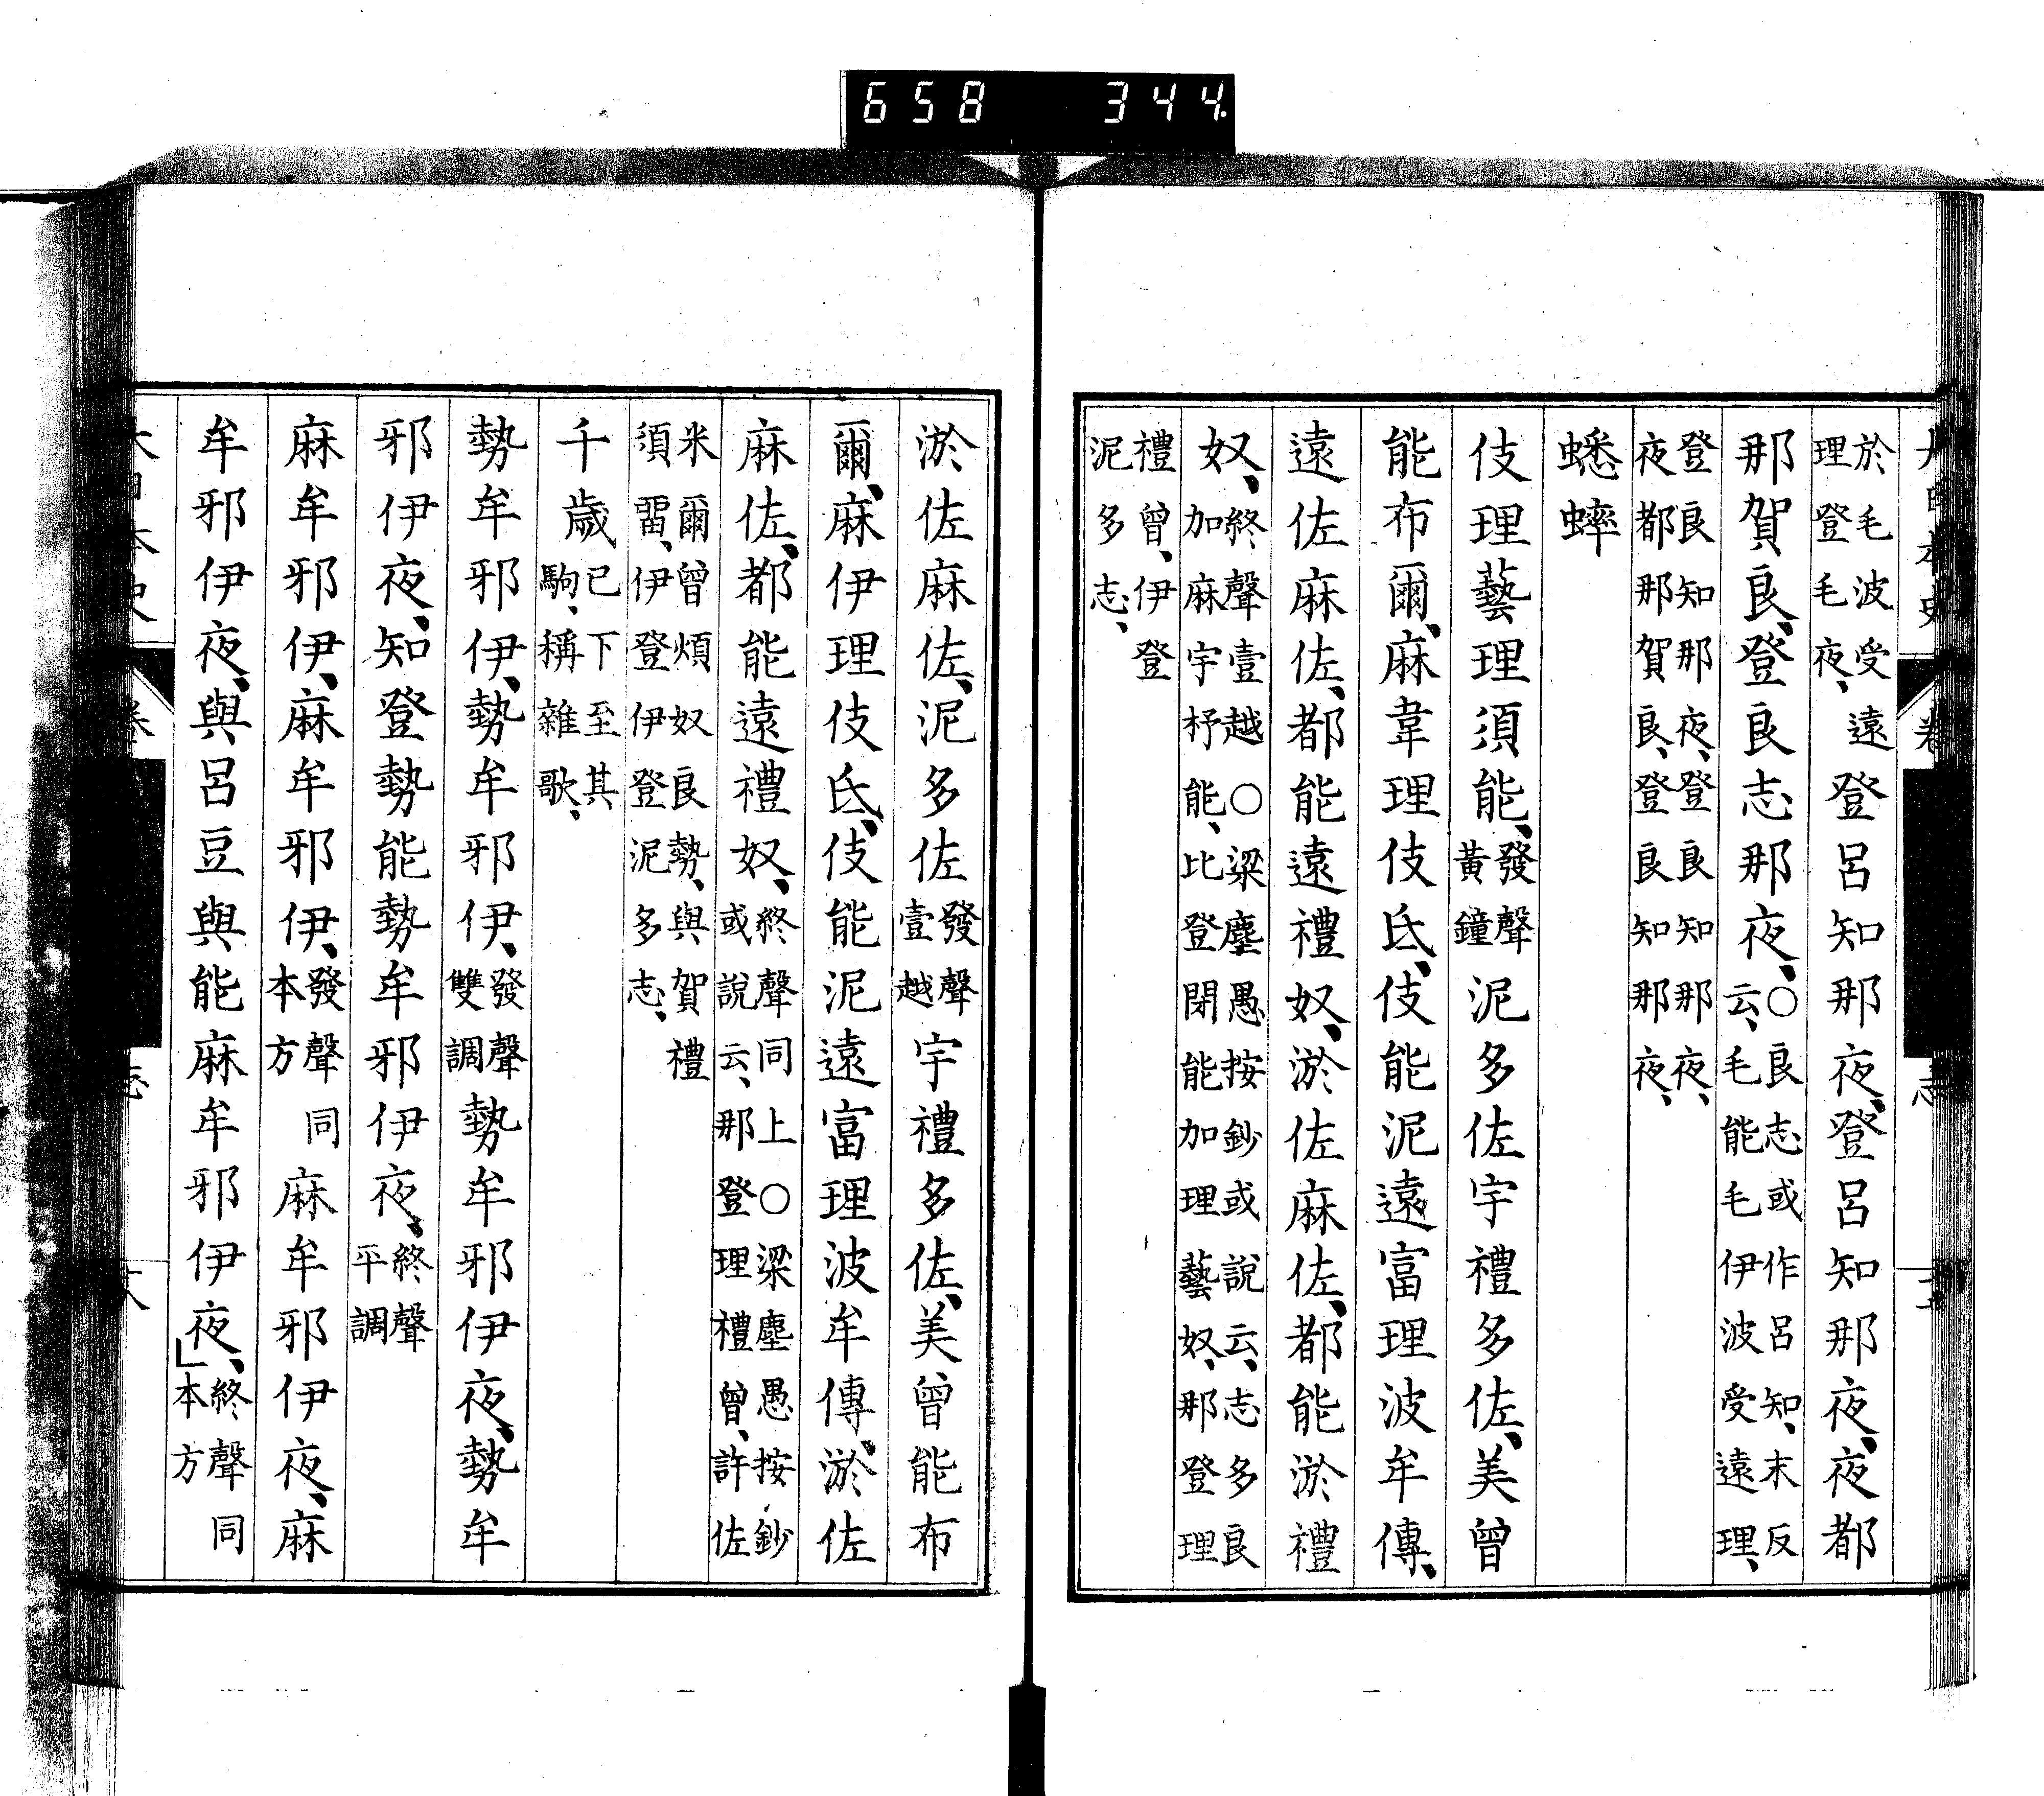 大日本史 卷 志
於毛波受遠理登毛夜、登呂知那夜、登呂知那夜、夜都
那賀良、登良志那夜、○良志或作呂知、末反云、毛能毛伊波受遠理、
登良知那夜、登良知那夜、夜都那賀良、登良知那夜、
蟋蟀
伎理藝理須能、發聲黃鐘泥多佐宇禮多佐、美曾
能布爾、麻韋理伎氐、伎能泥遠富理波牟傳、
遠佐麻佐、都能遠禮奴、淤佐麻佐、都能淤禮
奴、終聲壹越○梁塵愚按鈔或說云、志多良加麻宇杼能、比登閇能加理藝奴、那登理
禮曾、伊登泥多志、
淤佐麻佐、泥多佐發聲壹越宇禮多佐、美曾能布
爾、麻伊理伎氐、伎能泥遠富理波牟傳、淤佐
麻佐、都能遠禮奴、終聲同上○梁塵愚按鈔或說云、那登理禮曾、許佐
米爾曾煩奴良勢、與賀禮須畱、伊登伊登泥多志、
千歲已下至其駒、稱雜歌、
勢牟邪伊、勢牟邪伊、發聲雙調勢牟邪伊夜、勢牟
邪伊夜、知登勢能勢牟邪伊夜、終聲平調
麻牟邪伊、麻牟邪伊、發聲同本方麻牟邪伊夜、麻
牟邪伊夜、與呂豆與能麻牟邪伊夜、」終聲同本方
大日本史 卷 志
658 344.